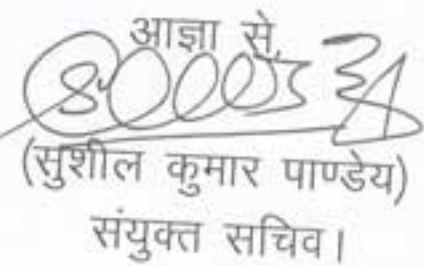 आज्ञा से,
(सुशील कुमार पाण्डेय)
संयुक्त सचिव।